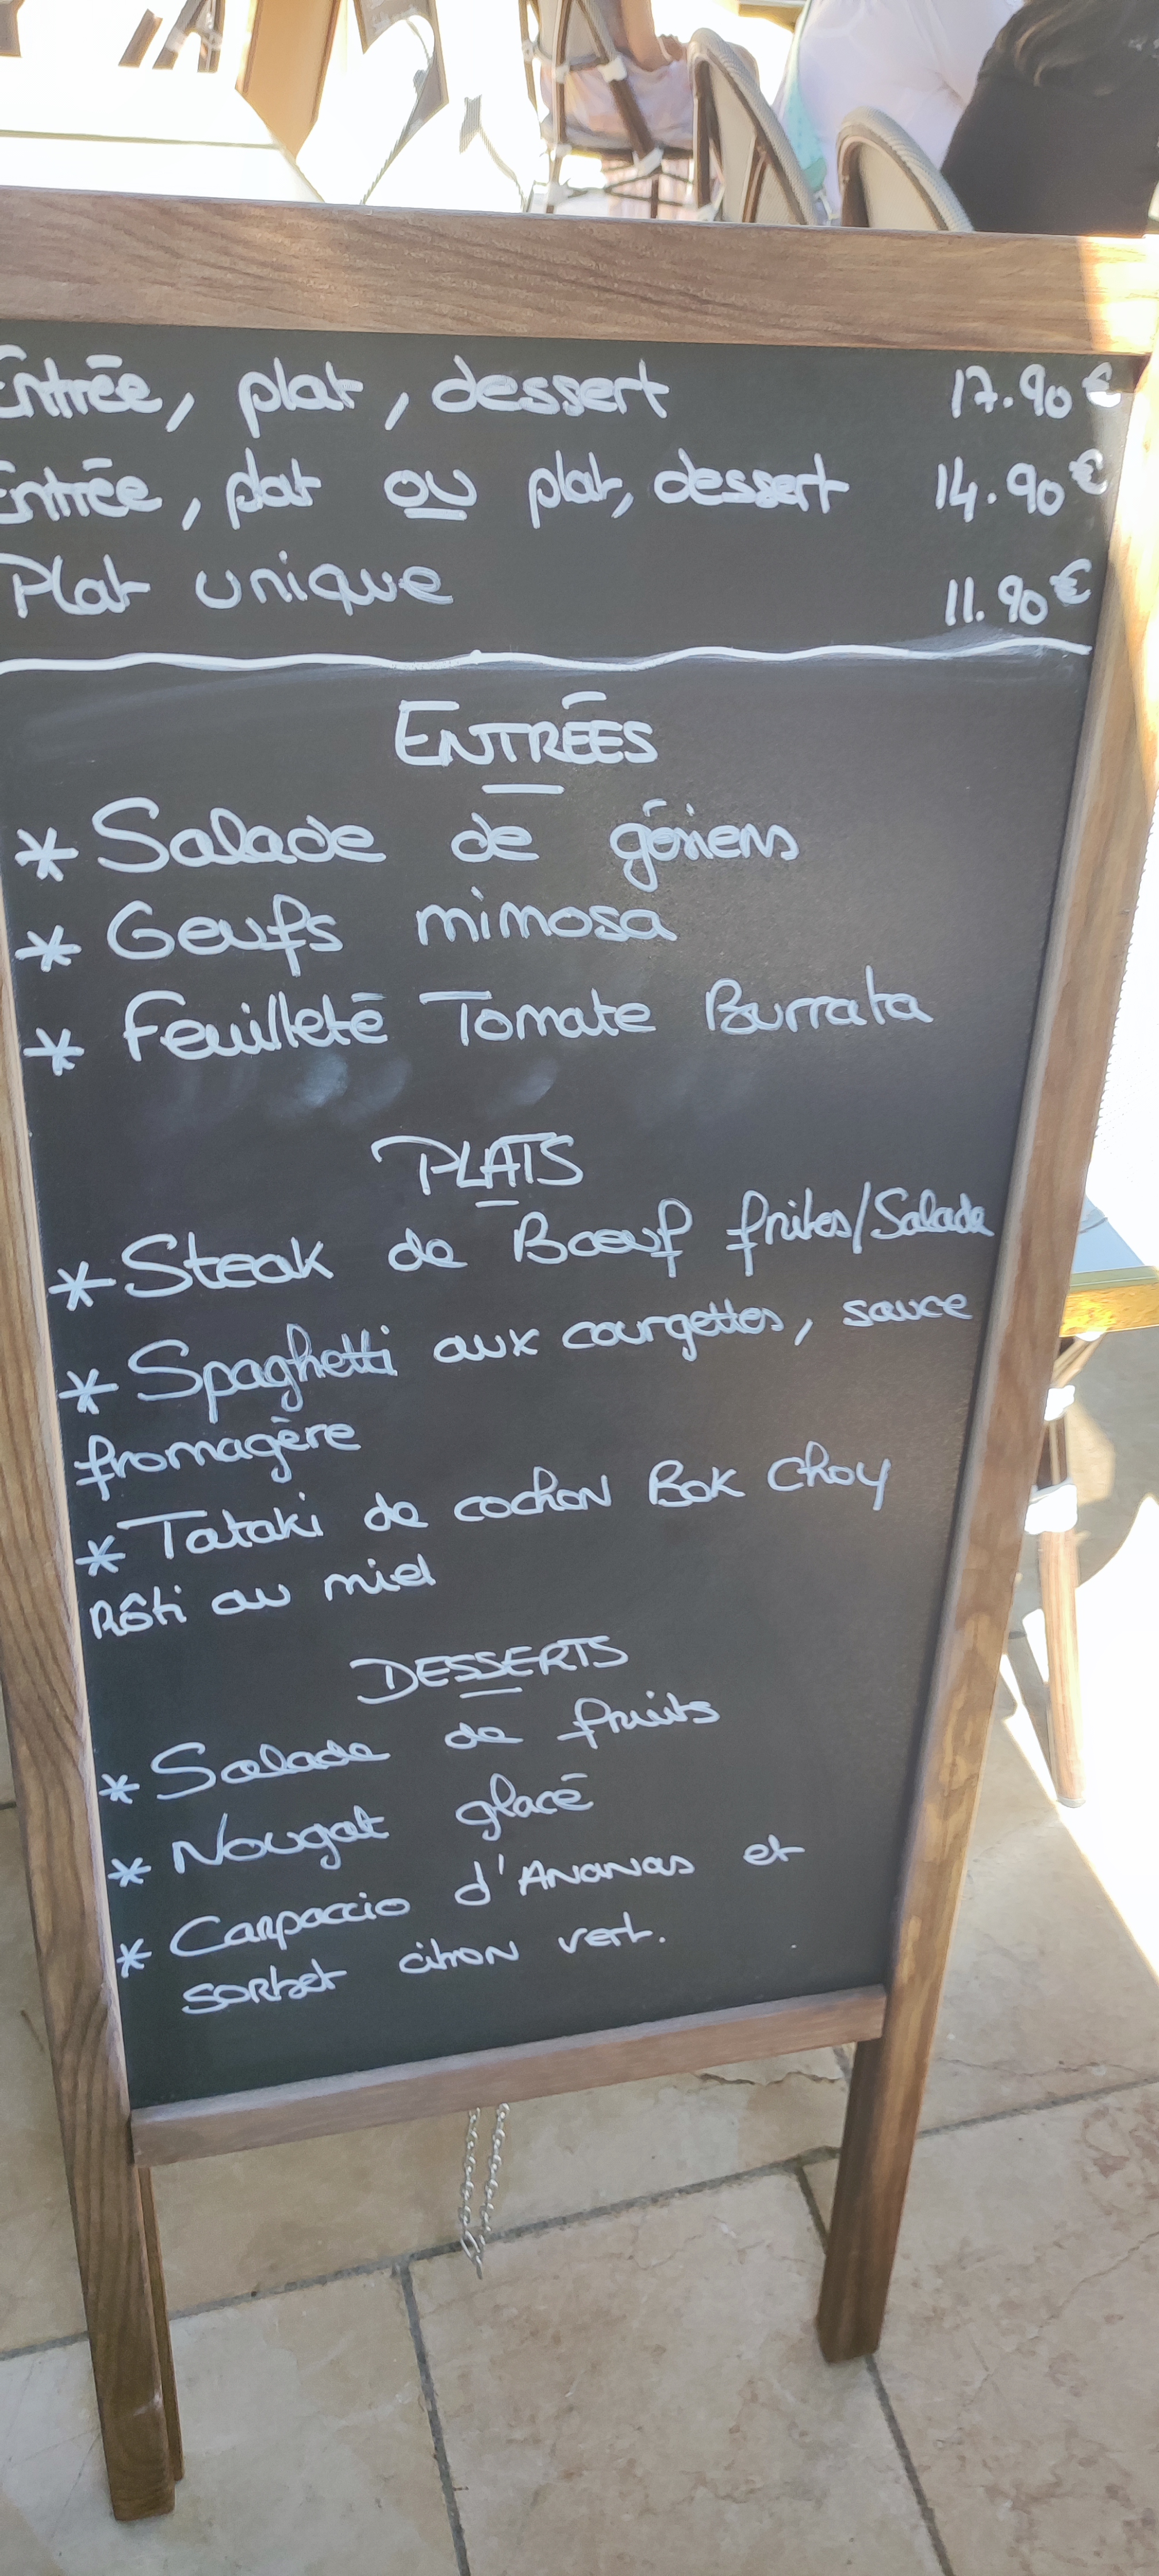 Entrée, plat, dessert 17.90€
Entrée, plat ou plat, dessert 14.90€
Plat unique 11.90€
ENTRÉES
* Salade de gésiers
* Oeufs mimosa
* Feuilleté Tomate Burrata
PLATS
* Steak de Bœuf frites/Salade
* Spaghetti aux courgettes, sauce
fromagère
* Tataki de cochon Bok Choy
Rôti au miel
DESSERTS
* Salade de fruits
* Nougat glacé
* Carpaccio d'Ananas et
sorbet citron vert.